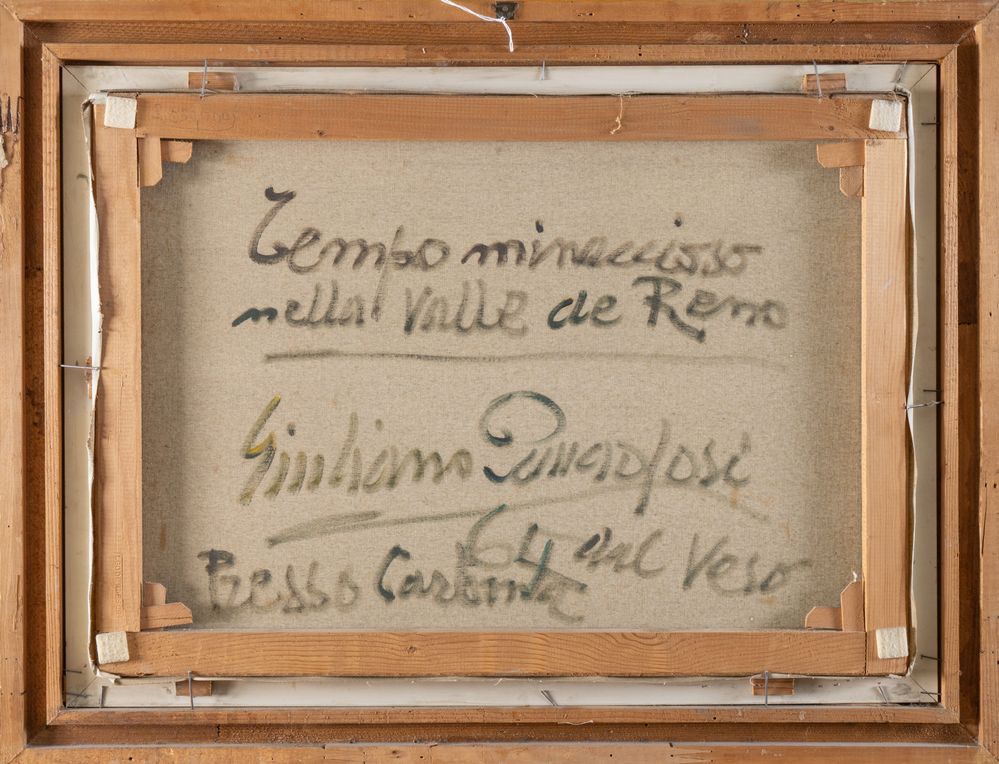 Tempo minaccioso
nella Valle de Reno
Giuliano Pancaldi
64 dal Vero
Presso Carbona